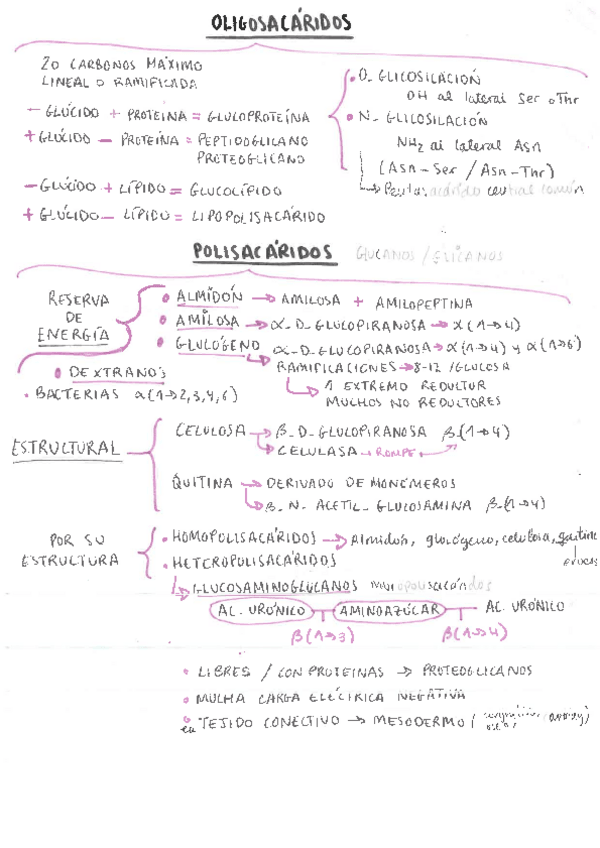 OLIGOSACÁRIDOS
20 CARBONOS MÁXIMO
LINEAL O RAMIFICADA
- GLÚCIDO + PROTEINA = GLUCOPROTEÍNA
+ GLÚCIDO - PROTEÍNA = PEPTIDOGLICANO
PROTEOGLICANO
- GLÚCIDO + LÍPIDO = GLUCOLÍPIDO
+ GLÚCIDO - LÍPIDO = LIPOPOLISACÁRIDO
• O_GLICOSILACIÓN
OH al lateral Ser o Thr
• N_ GLICOSILACIÓN
NH2 al lateral Asn
(Asn-Ser / Asn-Thr)
→ Pentasacárido central común
POLISACÁRIDOS GLUCANOS / GLICANOS
RESERVA
DE
ENERGÍA
• ALMIDÓN → AMILOSA + AMILOPEPTINA
• AMILOSA → α_D_GLUCOPIRANOSA → α(1→4)
• GLUCÓGENO α_D_GLUCOPIRANOSA → α(1→4) y α(1→6)
→ RAMIFICACIONES → 8-12 /GLUCOSA
→ 1 EXTREMO REDUCTOR
MUCHOS NO REDUCTORES
• DEXTRANOS
• BACTERIAS α(1→2,3,4,6)
ESTRUCTURAL
CELULOSA → β_D_GLUCOPIRANOSA β(1→4)
→ CELULASA → ROMPE
QUITINA → DERIVADO DE MONÓMEROS
→ β_N_ACETIL_GLUCOSAMINA β(1→4)
POR SU
ESTRUCTURA
• HOMOPOLISACÁRIDOS → Almidón, glucógeno, celulosa, quitina
• HETEROPOLISACÁRIDOS
→ GLUCOSAMINOGLUCANOS mucopolisacáridos
AC. URÓNICO AMINOAZÚCAR AC. URÓNICO
β(1→3) β(1→4)
• LIBRES / CON PROTEINAS → PROTEOGLICANOS
• MUCHA CARGA ELÉCTRICA NEGATIVA
• en TEJIDO CONECTIVO → MESODERMO (